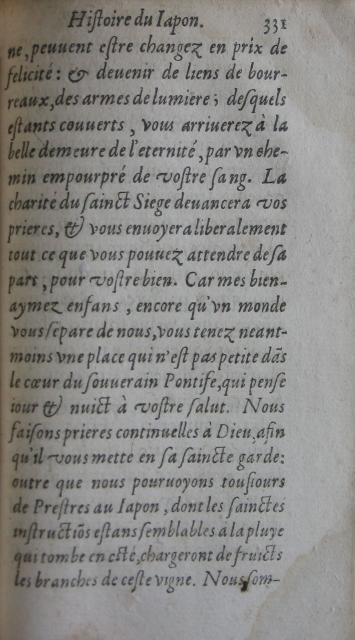 Hiſtoire du Iapon. 331
ne, peuuent eſtre changez en prix de
felicité : & deuenir de liens de bour-
reaux, des armes de lumiere ; deſquels
eſtants couuerts , vous arriuerez à la
belle demeure de l'eternité, par vn che-
min empourpré de voſtre ſang. La
charité du ſainct Siege deuancera vos
prieres, & vous enuoyera liberalement
tout ce que vous pouuez attendre de ſa
part , pour voſtre bien. Car mes bien-
aymez enfans , encore qu'vn monde
vous ſepare de nous, vous tenez neant-
moins vne place qui n'eſt pas petite dãs
le cœur du ſouuerain Pontife, qui penſe
iour & nuict à voſtre ſalut. Nous
faiſons prieres continuelles à Dieu, afin
qu'il vous mette en ſa ſaincte garde:
outre que nous pouruoyons touſiours
de Preſtres au Iapon , dont les ſainctes
inſtructiõs eſtans ſemblables à la pluye
qui tombe en eſté, chargeront de fruicts
les branches de ceſte vigne. Nous ſom-